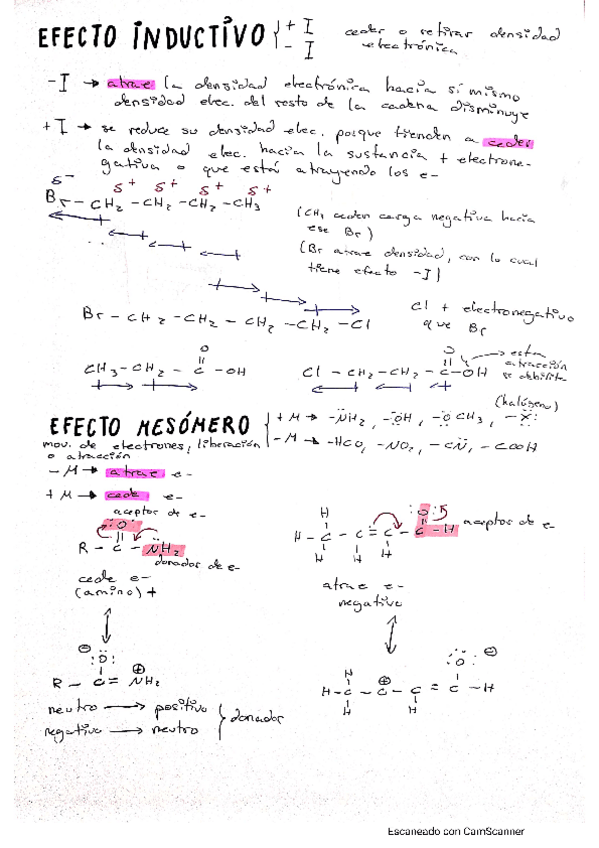 EFECTO INDUCTIVO { + I
- I
ceder o retirar densidad
electrónica
- I → atrae la densidad electrónica hacia sí mismo
densidad elec. del resto de la cadena disminuye
+ I → se reduce su densidad elec. porque tienden a ceder
la densidad elec. hacia la sustancia + electrone-
gativa o que está atrayendo los e-
δ- δ+ δ+ δ+ δ+
Br - CH2 - CH2 - CH2 - CH3
(CH2 ceden carga negativa hacia
ese Br)
(Br atrae densidad, con lo cual
tiene efecto - I)
Br - CH2 - CH2 - CH2 - CH2 - Cl
Cl + electronegativo
que Br
O
CH3 - CH2 - C - OH
O
Cl - CH2 - CH2 - C - OH
esta
atracción
se debilita
(halógeno)
EFECTO MESÓMERO { + M → - NH2, - OH, - OCH3, - X:
- M → - HCO, - NO2, - CN, - COOH
mov. de electrones, liberación
o atracción
- M → atrae e-
+ M → cede e-
aceptor de e-
:O:
R - C - NH2
donador de e-
cede e-
(amino) +
⊖
:O:
R - C = NH2
⊕
neutro → positivo
negativo → neutro
} donador
H :O:
H - C - C = C - C - H
H H H
aceptor de e-
atrae e-
negativo
H :O: ⊖
H - C - C - C = C - H
⊕
H H H
Escaneado con CamScanner